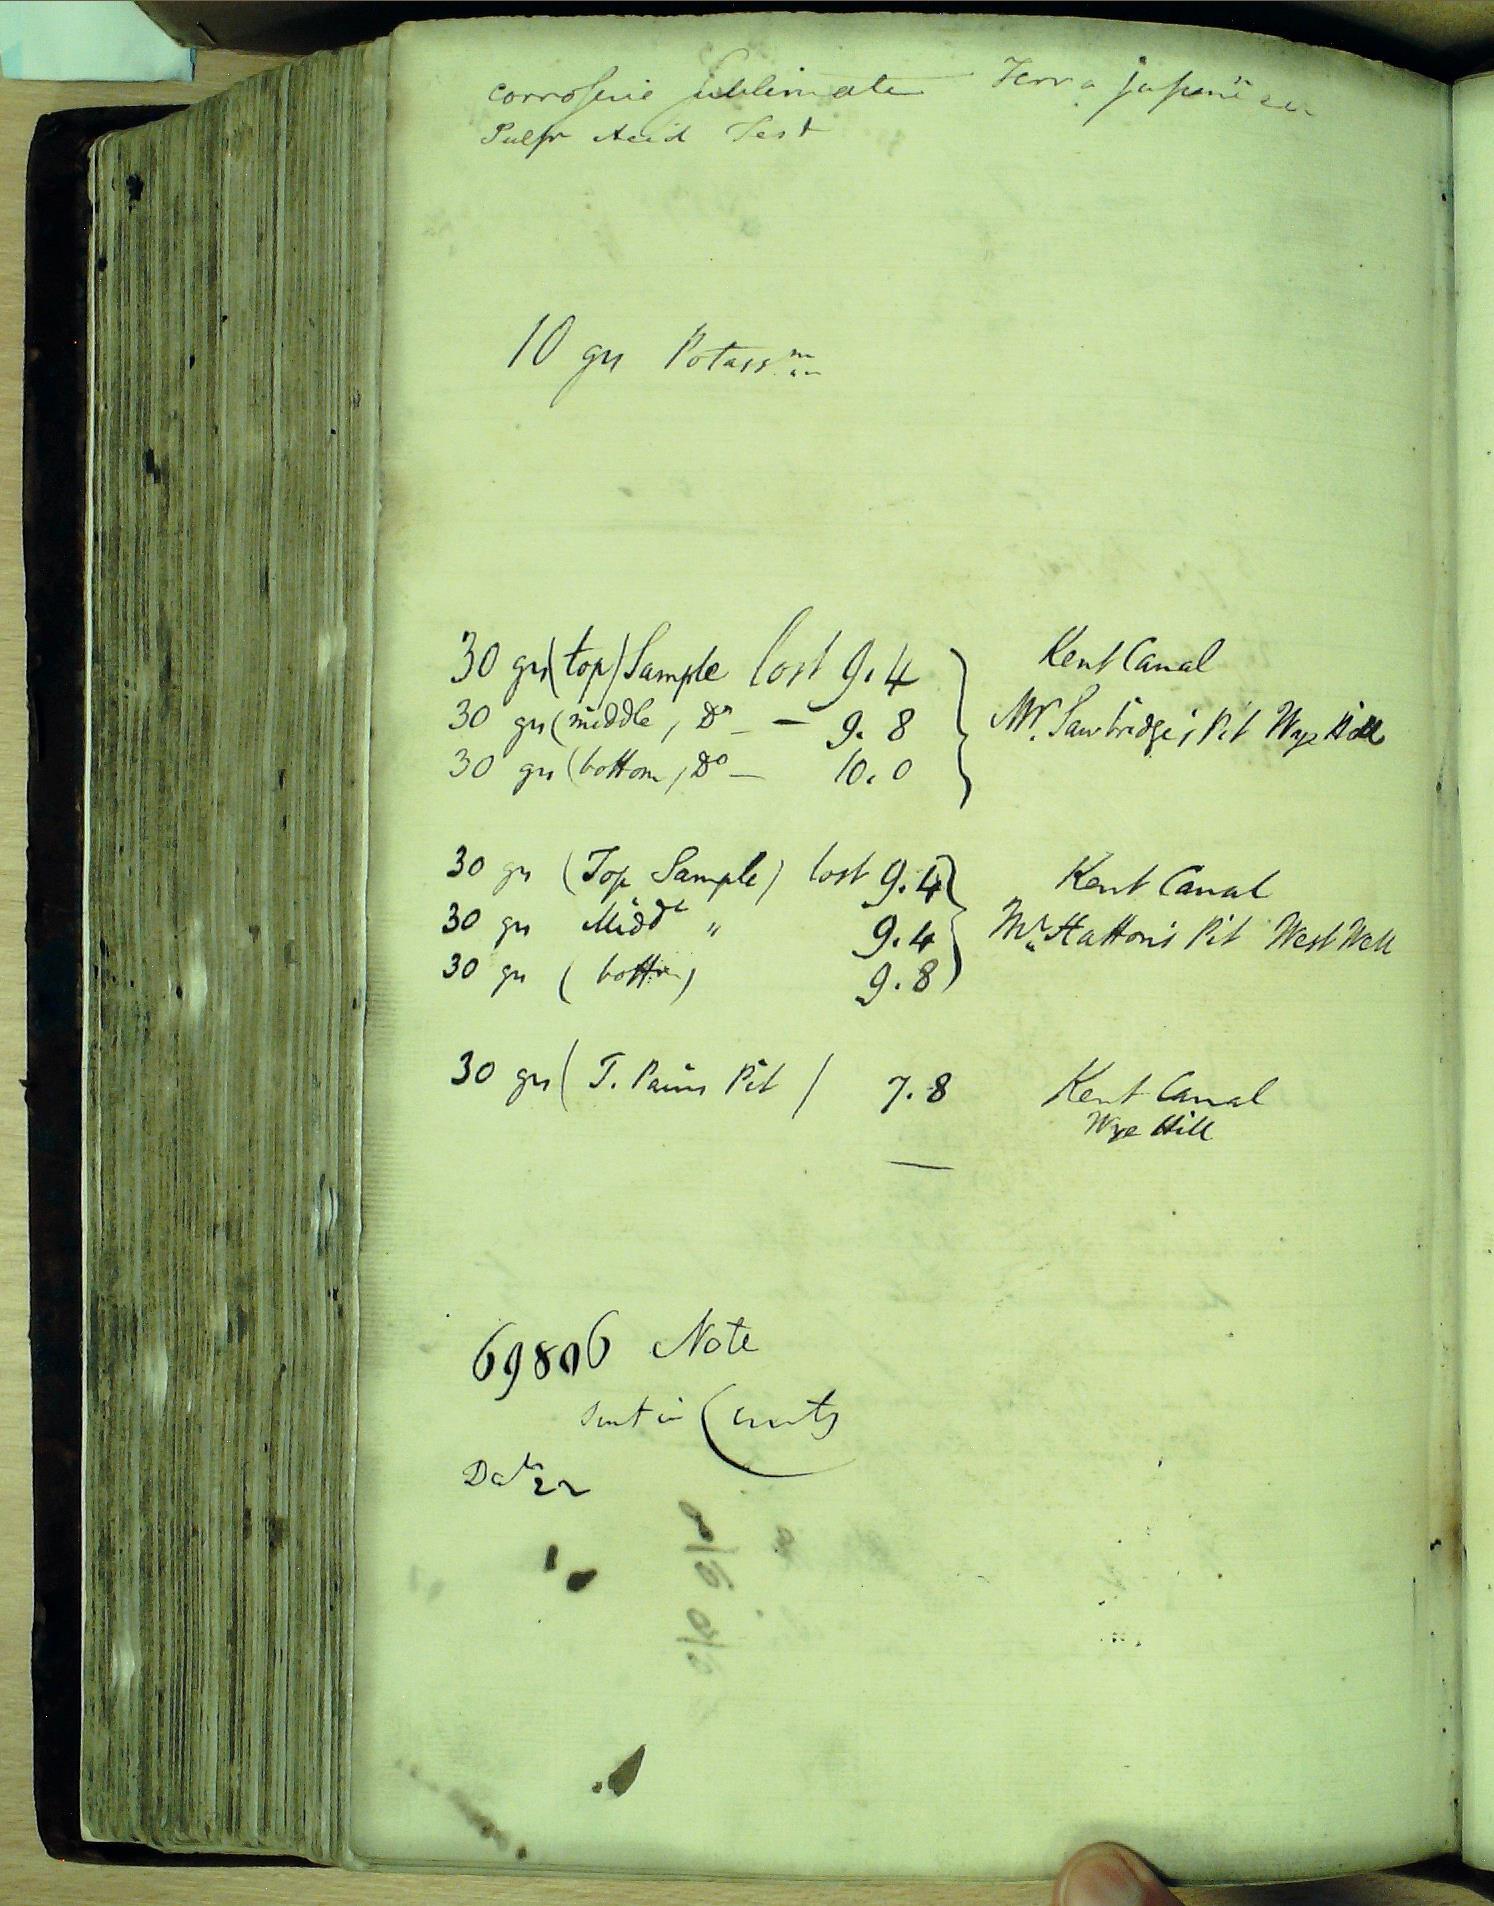 corrosive sublimate Terra japonica
Sulpr Acid Test
10 grs Potassm
30 grs (top) Sample lost 9.4 Kent Canal
30 grs (middle) Do — 9.8 Mr. Sawbridge's Pit Wye Hill
30 grs (bottom) Do — 10.0
30 grs (Top Sample) lost 9.4 Kent Canal
30 grs Middle " 9.4 Mr. Hatton's Pit West Well
30 grs (bottom) 9.8
30 grs (T. Pains Pit) 7.8 Kent Canal
Wye Hill
69806 Note
sent in
Date 22